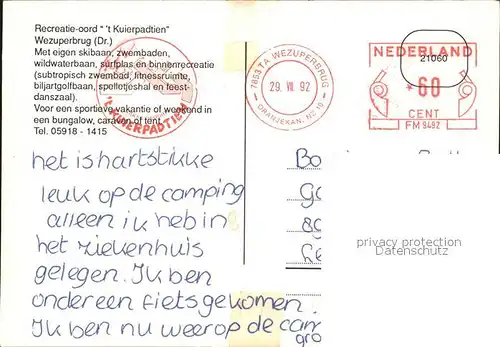 Recreatie-oord " 't Kuierpadtien"
Wezuperbrug (Dr.)
Met eigen skibaan, zwembaden,
wildwaterbaan, surfplas en binnenrecreatie
(subtropisch zwembad, fitnessruimte,
biljartgolfbaan, spelletjeshal en feest-
danszaal).
Voor een sportieve vakantie of weekend in
een bungalow, caravan of tent.
Tel. 05918 - 1415
't KUIERPADTIEN
7853 TA WEZUPERBRUG
29. VII 92
ORANJEKAN. NZ 10
NEDERLAND
21060
*60
CENT
FM 9492
het is hartstikke
leuk op de camping
alleen ik heb in
het ziekenhuis
gelegen. Ik ben
onder een fiets gekomen.
Ik ben nu weer op de cam
gro
privacy protection
Datenschutz